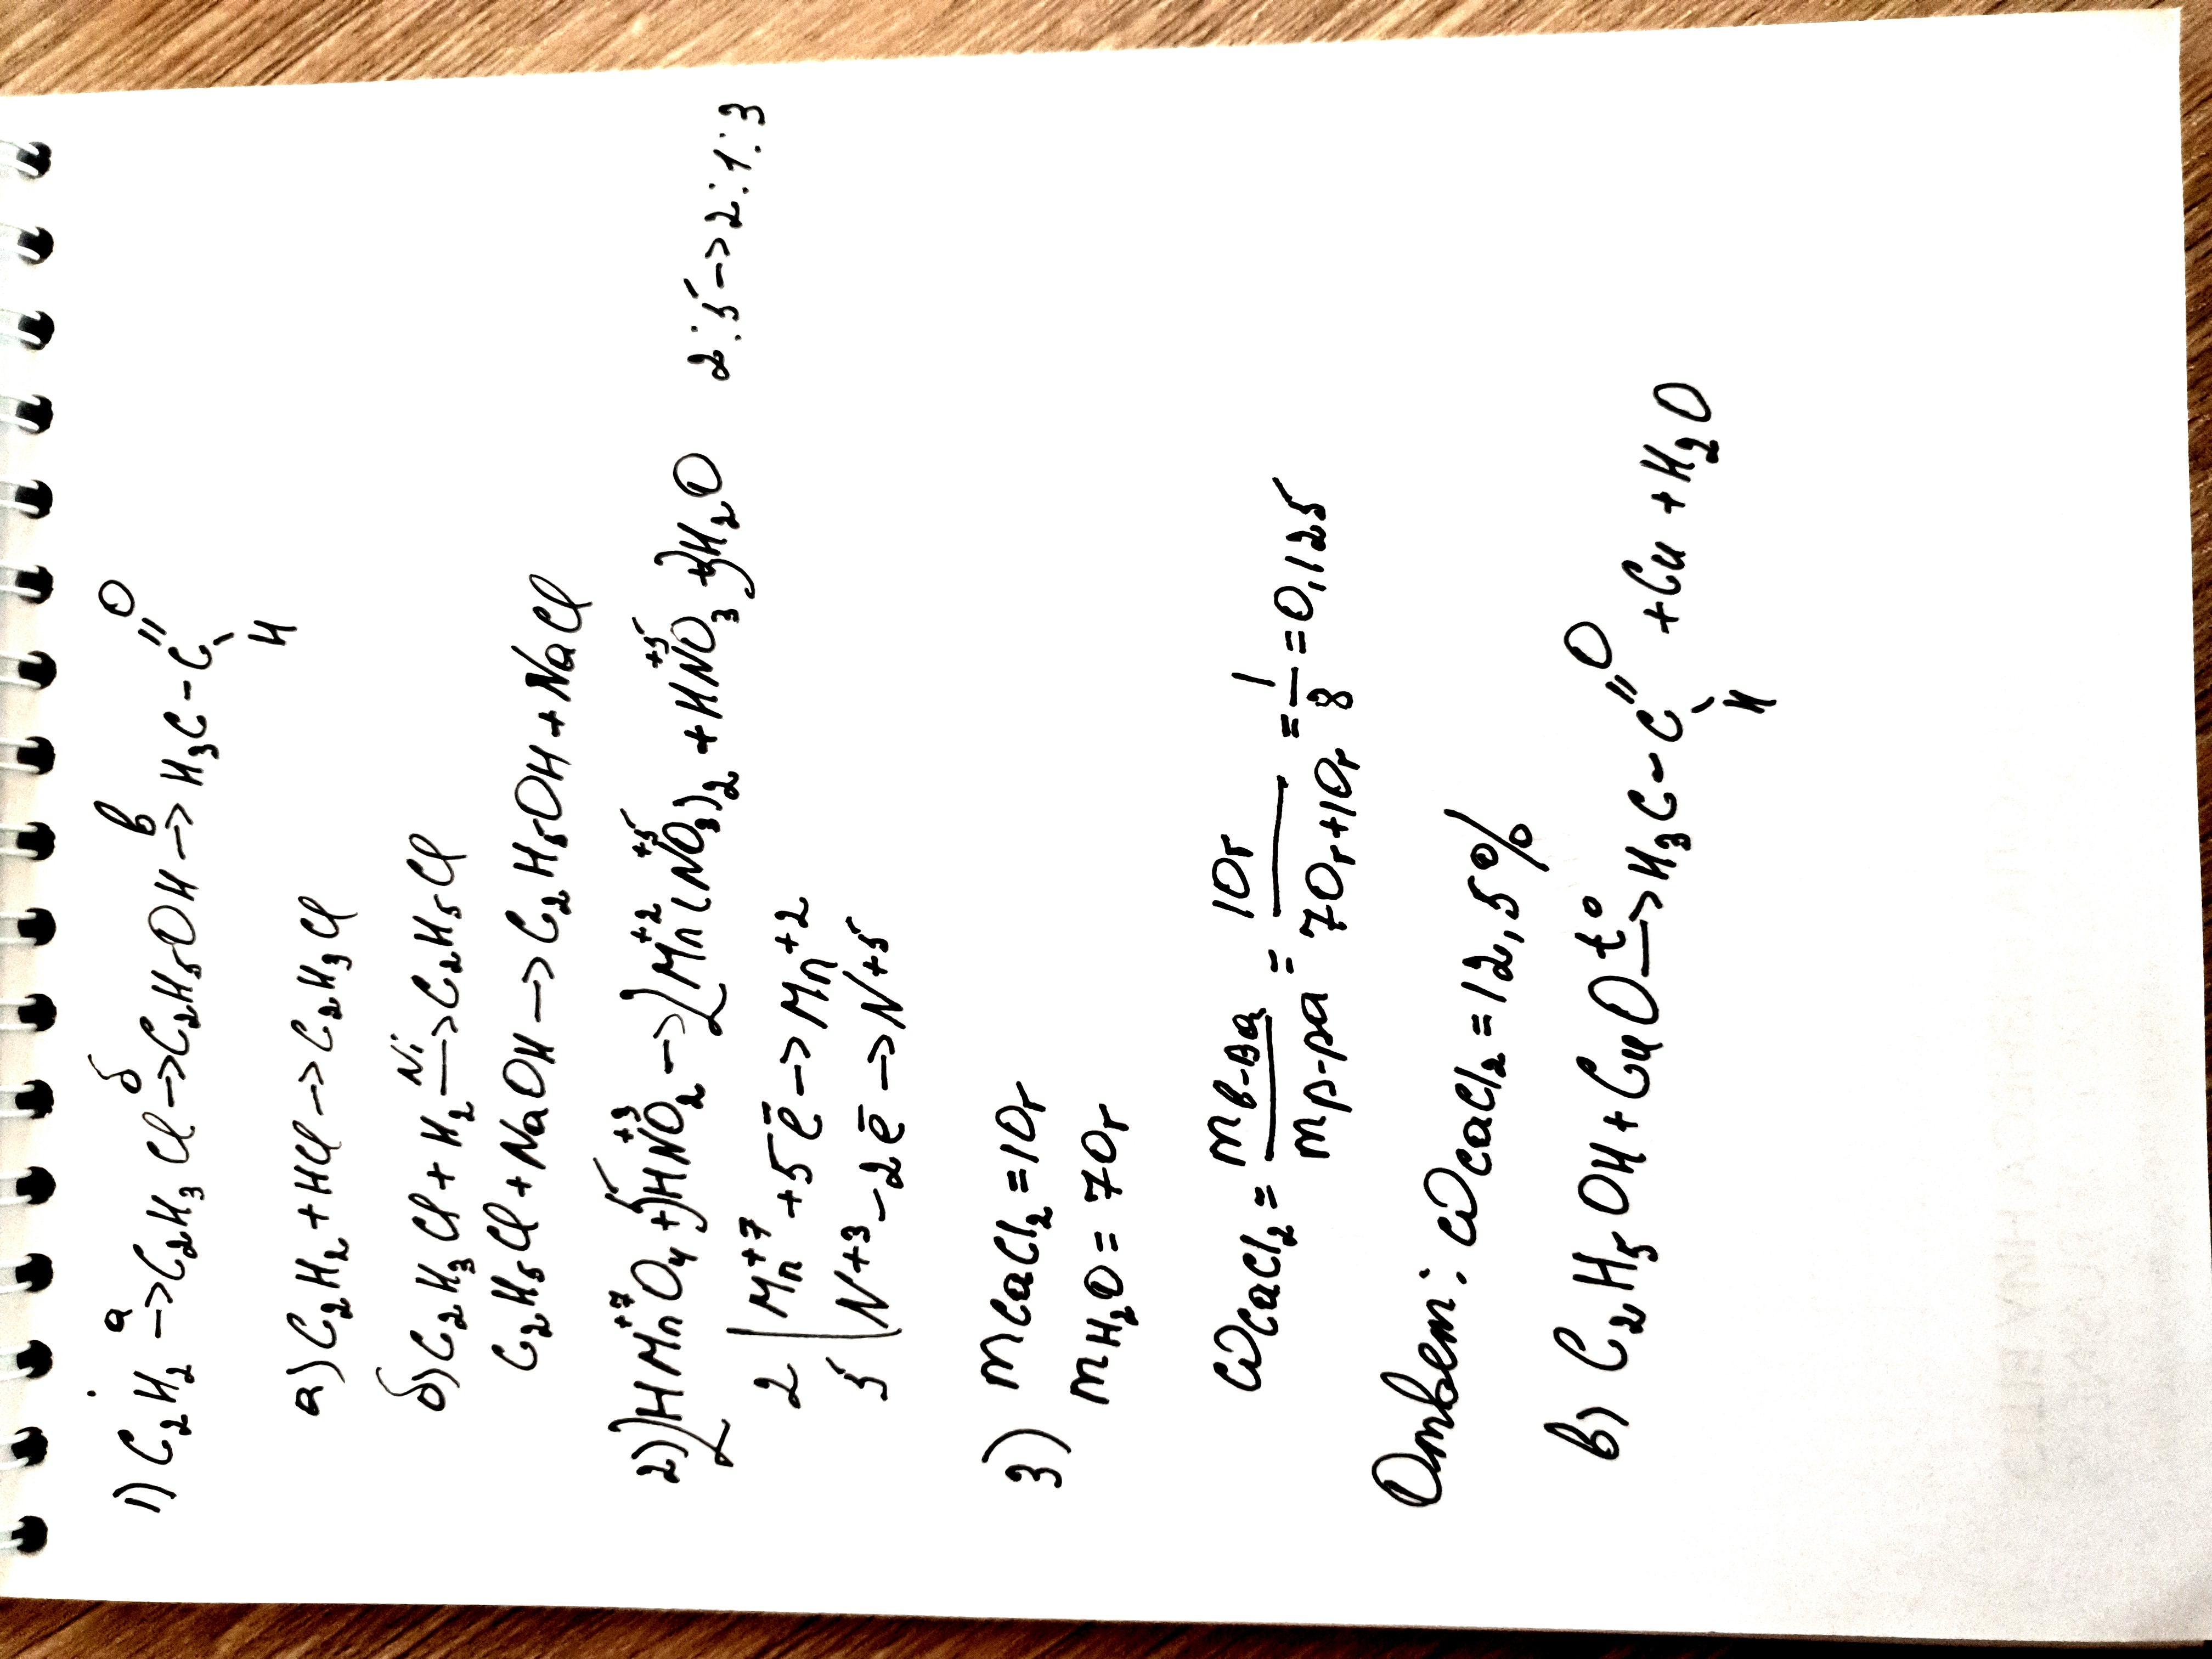 1) C₂H₂ →ᵃ C₂H₃Cl →ᵟ C₂H₅OH →ᵇ H₃C-C=O
H
а) C₂H₂ + HCl → C₂H₃Cl
б) C₂H₃Cl + H₂ →ᴺⁱ C₂H₅Cl
C₂H₅Cl + NaOH → C₂H₅OH + NaCl
2) 2HMn⁺⁷O₄ + 5HN⁺³O₂ → 2Mn⁺²(N⁺⁵O₃)₂ + HN⁺⁵O₃ + 3H₂O 2:5→2:1:3
2 | Mn⁺⁷ + 5ē → Mn⁺²
5 | N⁺³ - 2ē → N⁺⁵
3) mCaCl₂ = 10г
mH₂O = 70г
ωCaCl₂ = mв-ва/mр-ра = 10г/70г+10г = 1/8 = 0,125
Ответ: ωCaCl₂ = 12,5%
в) C₂H₅OH + CuO →ᵗ° H₃C-C=O + Cu + H₂O
H